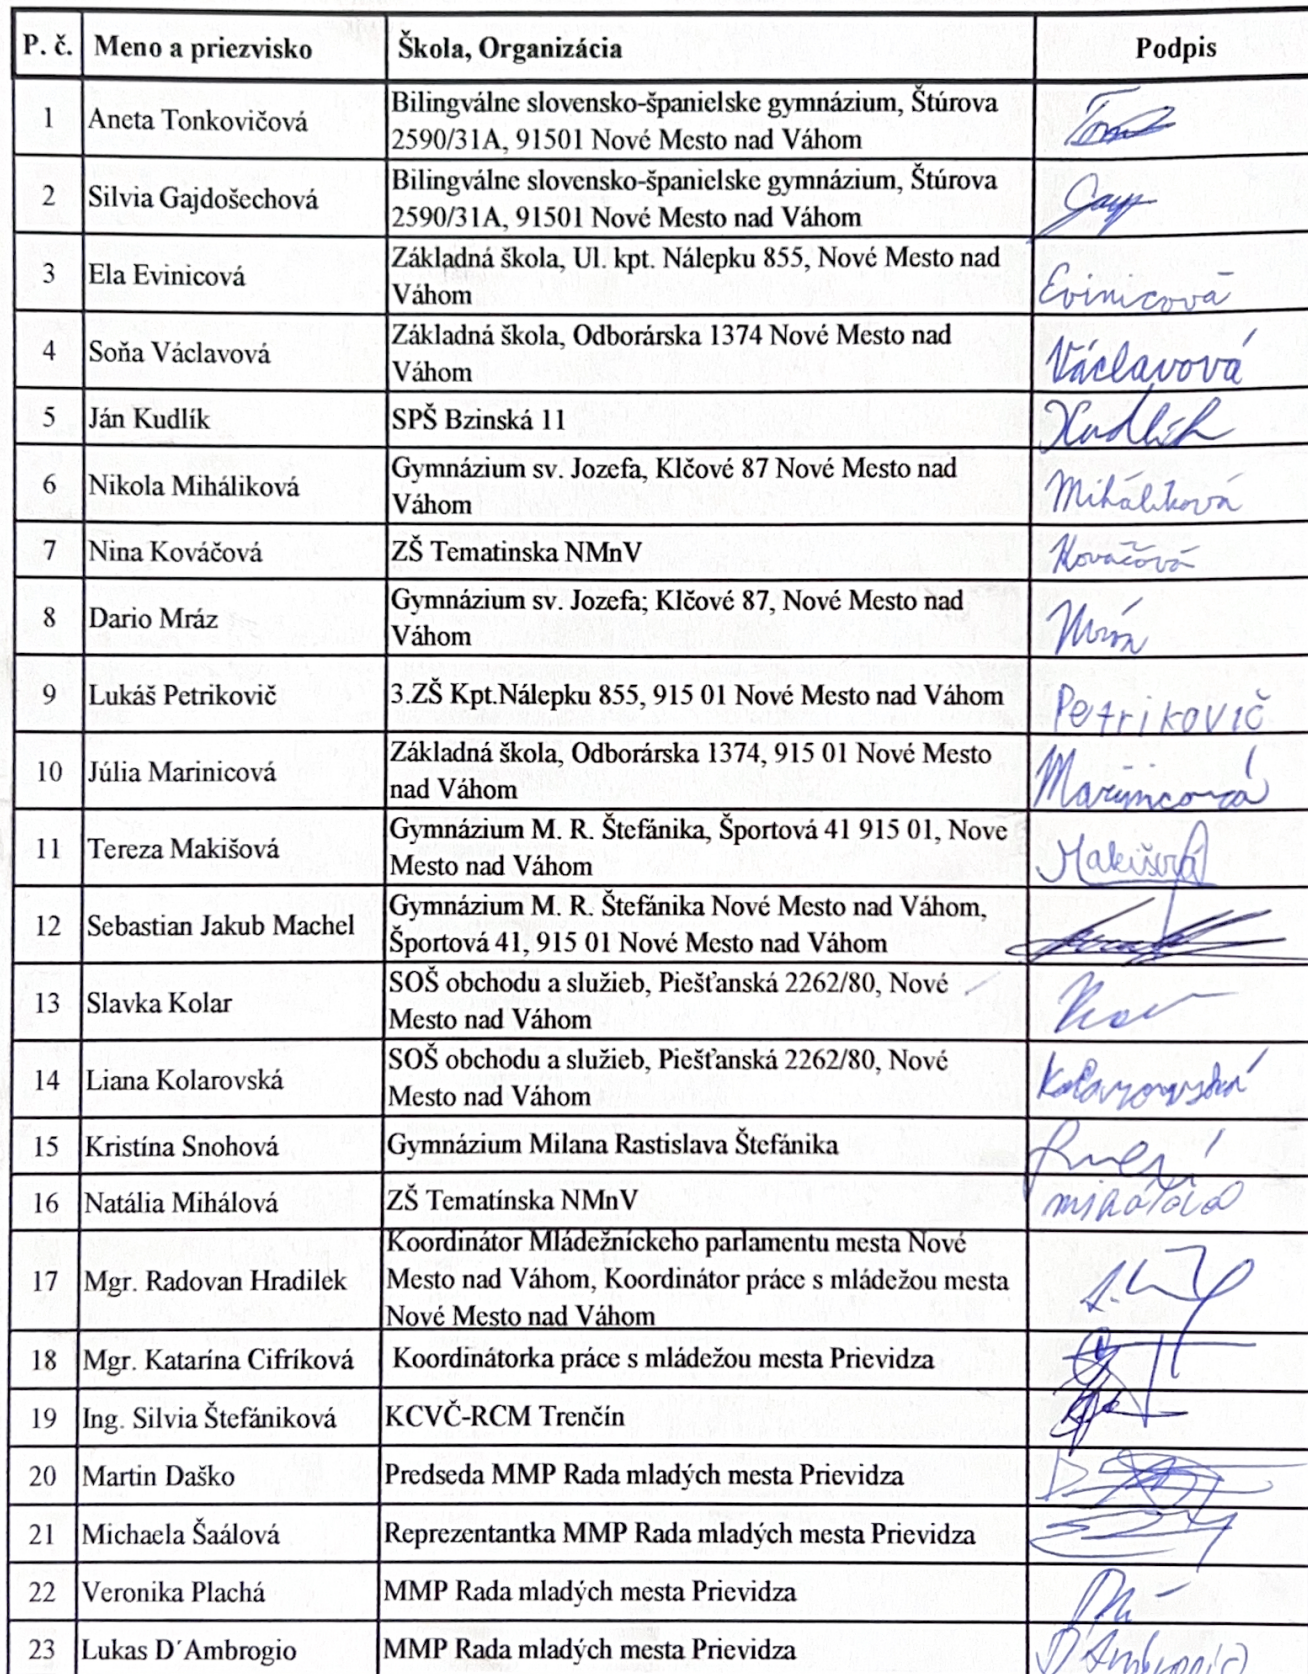 P. č. Meno a priezvisko Škola, Organizácia Podpis
1 Aneta Tonkovičová Bilingválne slovensko-španielske gymnázium, Štúrova
2590/31A, 91501 Nové Mesto nad Váhom
2 Silvia Gajdošechová Bilingválne slovensko-španielske gymnázium, Štúrova
2590/31A, 91501 Nové Mesto nad Váhom
3 Ela Evinicová Základná škola, Ul. kpt. Nálepku 855, Nové Mesto nad
Váhom Evinicová
4 Soňa Václavová Základná škola, Odborárska 1374 Nové Mesto nad
Váhom Václavová
5 Ján Kudlík SPŠ Bzinská 11 Kudlík
6 Nikola Miháliková Gymnázium sv. Jozefa, Klčové 87 Nové Mesto nad
Váhom Miháliková
7 Nina Kováčová ZŠ Tematinska NMnV Kováčová
8 Dario Mráz Gymnázium sv. Jozefa; Klčové 87, Nové Mesto nad
Váhom
9 Lukáš Petrikovič 3.ZŠ Kpt.Nálepku 855, 915 01 Nové Mesto nad Váhom Petrikovič
10 Júlia Marinicová Základná škola, Odborárska 1374, 915 01 Nové Mesto
nad Váhom Marinicová
11 Tereza Makišová Gymnázium M. R. Štefánika, Športová 41 915 01, Nove
Mesto nad Váhom Makišová
12 Sebastian Jakub Machel Gymnázium M. R. Štefánika Nové Mesto nad Váhom,
Športová 41, 915 01 Nové Mesto nad Váhom
13 Slavka Kolar SOŠ obchodu a služieb, Piešťanská 2262/80, Nové
Mesto nad Váhom
14 Liana Kolarovská SOŠ obchodu a služieb, Piešťanská 2262/80, Nové
Mesto nad Váhom Kolarovská
15 Kristína Snohová Gymnázium Milana Rastislava Štefánika
16 Natália Mihálová ZŠ Tematínska NMnV Mihálová
Koordinátor Mládežníckeho parlamentu mesta Nové
17 Mgr. Radovan Hradilek Mesto nad Váhom, Koordinátor práce s mládežou mesta
Nové Mesto nad Váhom
18 Mgr. Katarína Cifríková Koordinátorka práce s mládežou mesta Prievidza
19 Ing. Silvia Štefániková KCVČ-RCM Trenčín
20 Martin Daško Predseda MMP Rada mladých mesta Prievidza
21 Michaela Šaálová Reprezentantka MMP Rada mladých mesta Prievidza
22 Veronika Plachá MMP Rada mladých mesta Prievidza
23 Lukas D´Ambrogio MMP Rada mladých mesta Prievidza D'Ambrogio